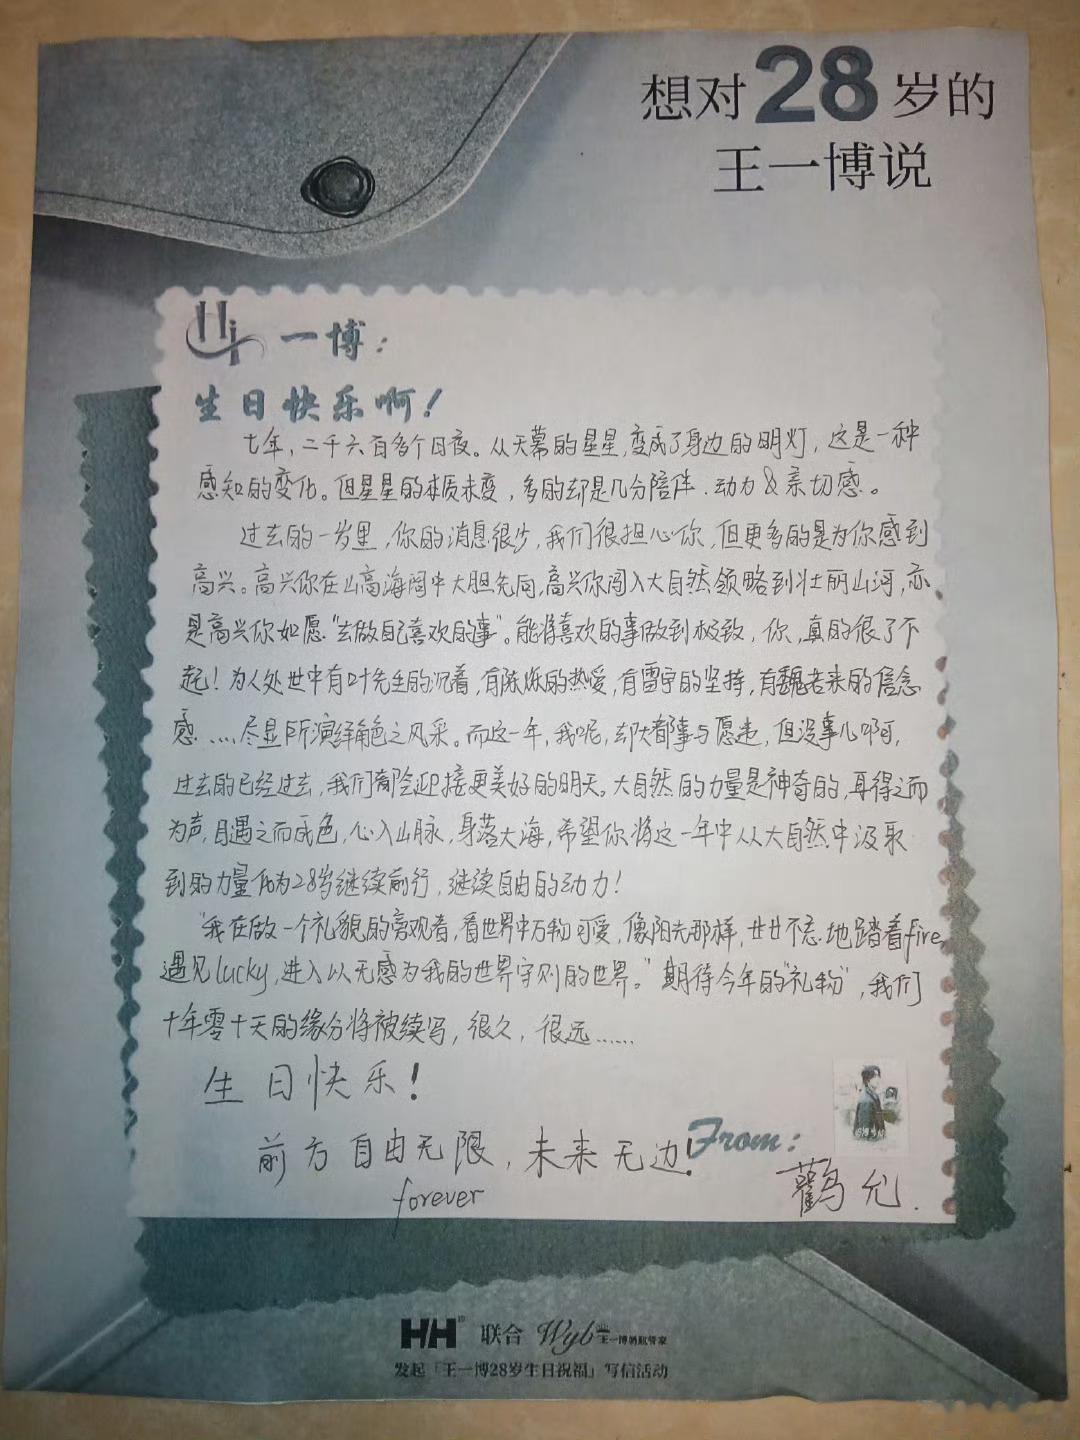 想对28岁的
王一博说
Hi 一博：
生日快乐啊！
七年，二千六百多个日夜。从天幕的星星，变成了身边的明灯，这是一种
感知的变化。但星星的本质未变，多的却是几分陪伴、动力&亲切感。
过去的一岁里，你的消息很少，我们很担心你，但更多的是为你感到
高兴。高兴你在山高海阔中大胆先闯，高兴你闯入大自然领略到壮丽山河，亦
是高兴你如愿“去做自己喜欢的事”。能将喜欢的事做到极致，你，真的很了不
起！为人处世中有叶先生的沉着，有陈烁的热爱，有雷宇的坚持，有魏若来的信念
感……尽显所演绎角色之风采。而这一年，我呢，却大都事与愿违，但没事儿啊，
过去的已经过去，我们都会迎接更美好的明天。大自然的力量是神奇的，耳得之而
为声，目遇之而成色，心入山脉，身落大海，希望你将这一年中从大自然中汲取
到的力量化为28岁继续前行，继续自由的动力！
“我在做一个礼貌的旁观者，看世界中万物可爱，像阳光那样，世世不忘地踏着fire，
遇见lucky，进入以无感为我的世界守则的世界。”期待今年的“礼物”，我们
十年零十天的缘分将被续写，很久，很远……
生日快乐！
前方自由无限，未来无边！
forever
From：
鹳允.
HH 联合 Wyb 王一博
发起「王一博28岁生日祝福」写信活动